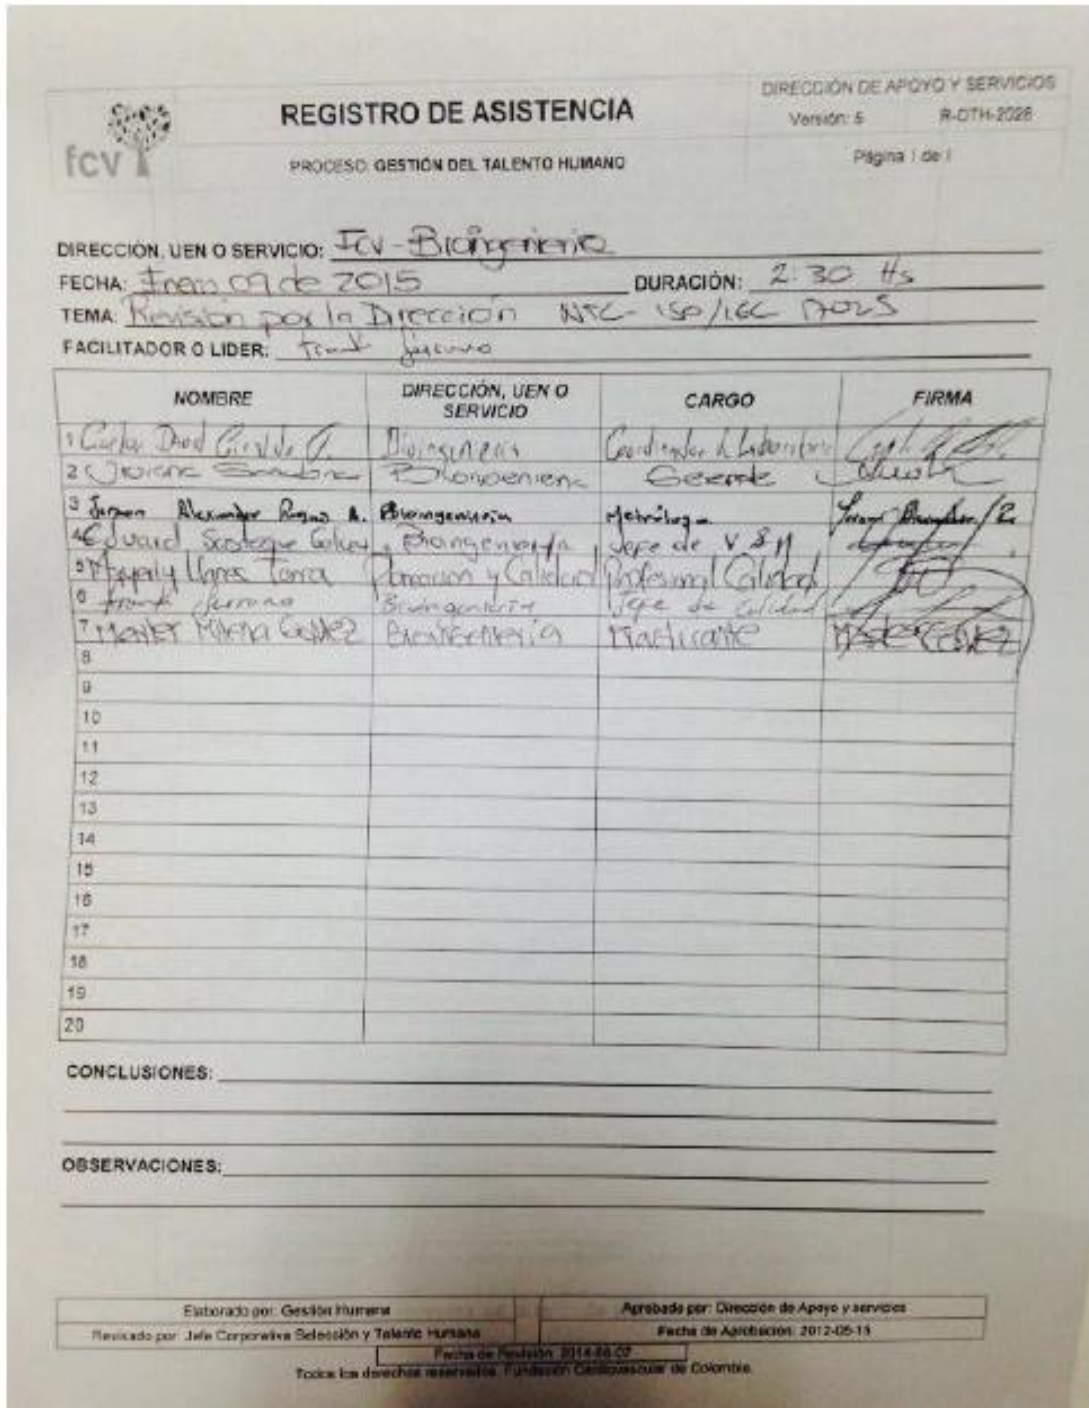 fcv
REGISTRO DE ASISTENCIA
PROCESO: GESTIÓN DEL TALENTO HUMANO
DIRECCIÓN DE APOYO Y SERVICIOS
Versión: 5 R-DTH-2026
Página 1 de 1
DIRECCIÓN, UEN O SERVICIO: FCV - Bioingenieria
FECHA: Enero 09 de 2015 DURACIÓN: 2:30 Hs
TEMA: Revisión por la Dirección NTC- ISO/IEC 17025
FACILITADOR O LIDER: Frank Serrano
NOMBRE DIRECCIÓN, UEN O SERVICIO CARGO FIRMA
1 Carlos David Bioingenieria Coordinador de Laboratorio
2 Bioingenieria Gerente
3 Alexander Bioingenieria Metrólogo
4 Eduard Bioingeniería Jefe de V & M
5 Llanes Planeación y Calidad Profesional Calidad
6 Frank Serrano Bioingeniería Jefe de Calidad
7 Milena Bioingeniería Practicante
8
9
10
11
12
13
14
15
16
17
18
19
20
CONCLUSIONES:
OBSERVACIONES:
Elaborado por: Gestión Humana Aprobado por: Dirección de Apoyo y servicios
Revisado por: Jefe Corporativa Selección y Talento Humano Fecha de Aprobación: 2012-05-15
Fecha de Revisión:
Todos los derechos reservados. Fundación Cardiovascular de Colombia.